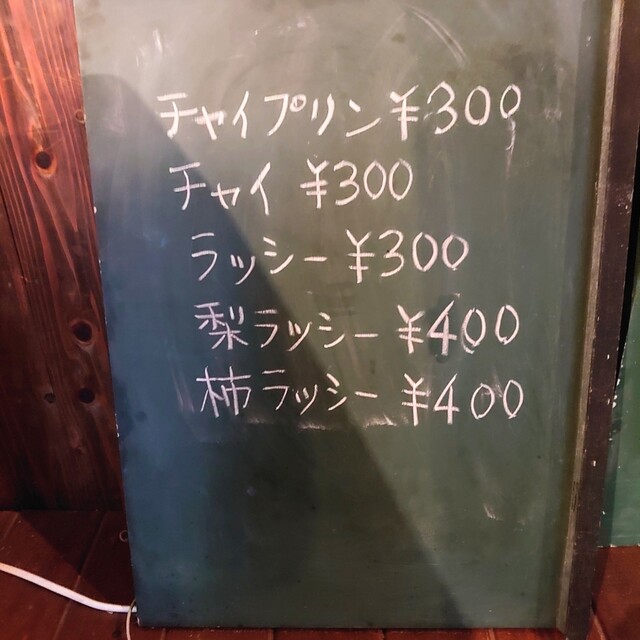 チャイプリン ¥300
チャイ ¥300
ラッシー ¥300
梨ラッシー ¥400
柿ラッシー ¥400